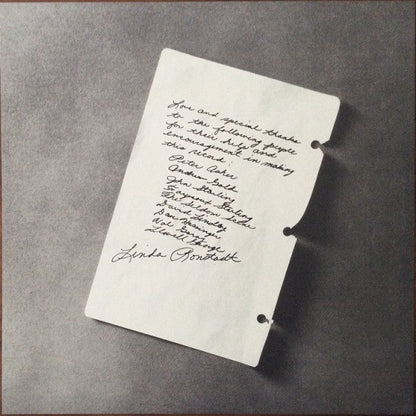 Love and special thanks
to the following people
for their help and
encouragement in making
this record:
Peter Asher
Andrew Gold
John Starling
Fayssoux Starling
The Seldom Scene
David Lindley
Dan
Lowell George
Linda Ronstadt